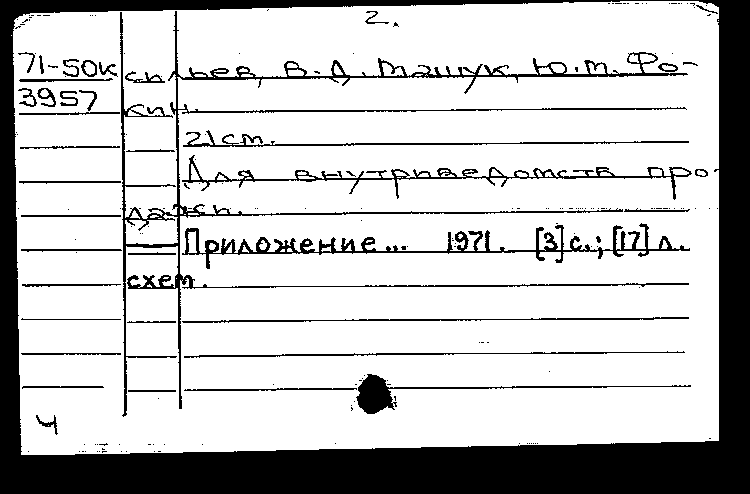 2.
71-50к сильев, В.Д. Мацук, Ю.М. Фо-
3957 кин.
21 ст.
Для внутриведомств про-
дажи.
— Приложение... 1971. [3] с.; [17] л.
схем.
Ч